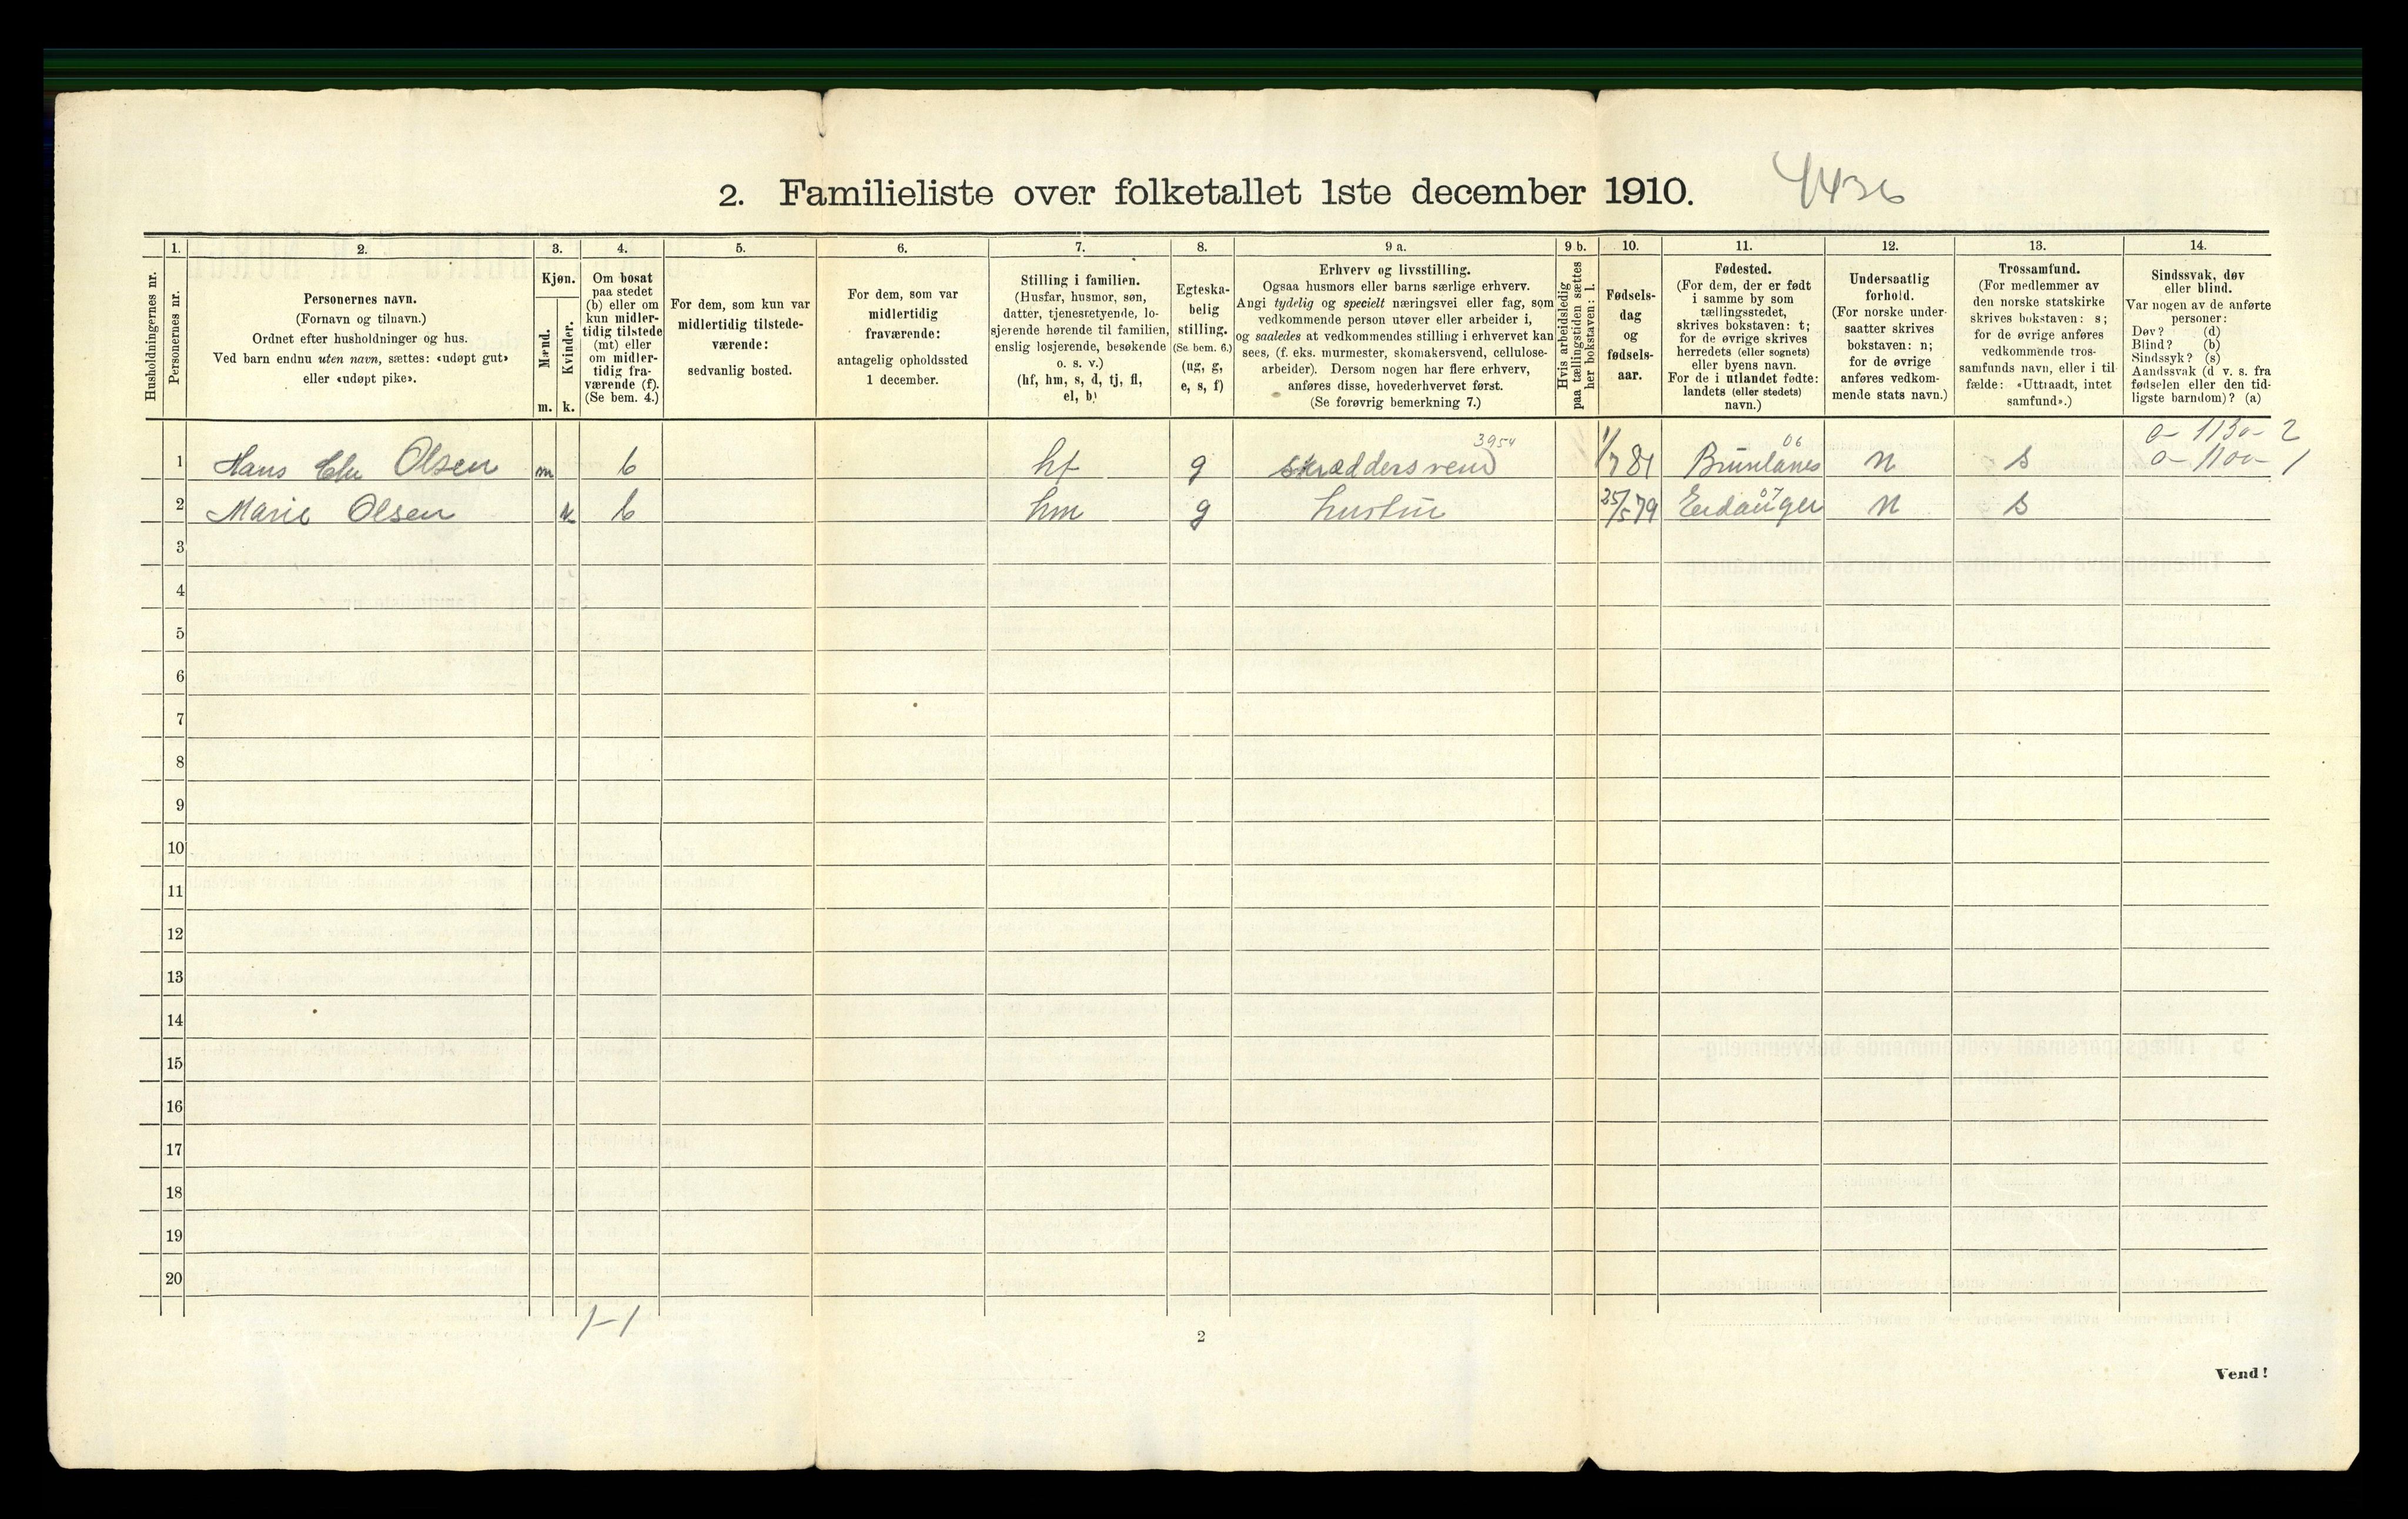 2. Familieliste over folketallet 1ste december 1910.
4436
Husholdningernes nr.
1.
Personernes nr.
2.
Personernes navn.
(Fornavn og tilnavn.)
Ordnet efter husholdninger og hus.
Ved barn endnu uten navn, sættes: «udøpt gut»
eller «udøpt pike».
3.
Kjøn.
Mænd.
Kvinder.
m. k.
4.
Om bosat
paa stedet
(b) eller om
kun midler-
tidig tilstede
(mt) eller
om midler-
tidig fra-
værende (f).
(Se bem. 4.)
5.
For dem, som kun var
midlertidig tilstede-
værende:
sedvanlig bosted.
6.
For dem, som var
midlertidig
fraværende:
antagelig opholdssted
1 december.
7.
Stilling i familien.
(Husfar, husmor, søn,
datter, tjenestetyende, lo-
sjerende hørende til familien,
enslig losjerende, besøkende
o. s. v.)
(hf, hm, s, d, tj, fl,
el, b)
8.
Egteska-
belig
stilling.
(Se bem. 6.)
(ug, g,
e, s, f)
9 a.
Erhverv og livsstilling.
Ogsaa husmors eller barns særlige erhverv.
Angi tydelig og specielt næringsvei eller fag, som
vedkommende person utøver eller arbeider i,
og saaledes at vedkommendes stilling i erhvervet kan
sees, (f. eks. murmester, skomakersvend, cellulose-
arbeider). Dersom nogen har flere erhverv,
anføres disse, hovederhvervet først.
(Se forøvrig bemerkning 7.)
9 b.
Hvis arbeidsledig
paa tællingstiden sættes
her bokstaven: l.
10.
Fødsels-
dag
og
fødsels-
aar.
11.
Fødested.
(For dem, der er født
i samme by som
tællingsstedet,
skrives bokstaven: t;
for de øvrige skrives
herredets (eller sognets)
eller byens navn.
For de i utlandet fødte:
landets (eller stedets)
navn.)
12.
Undersaatlig
forhold.
(For norske under-
saatter skrives
bokstaven: n;
for de øvrige
anføres vedkom-
mende stats navn.)
13.
Trossamfund.
(For medlemmer av
den norske statskirke
skrives bokstaven: s;
for de øvrige anføres
vedkommende tros-
samfunds navn, eller i til
fælde: «Uttraadt, intet
samfund».)
14.
Sindssvak, døv
eller blind.
Var nogen av de anførte
personer:
Døv? (d)
Blind? (b)
Sindssyk? (s)
Aandssvak (d v. s. fra
fødselen eller den tid-
ligste barndom)? (a)
3954 06 0-1130-2
1 Hans Chr Olsen m b hf g skræddersvend 1/7 81 Brunlanes n s 0-1100-1
07
2 Marie Olsen k b hm g hustru 25/5 79 Eidanger n s
3
4
5
6
7
8
9
10
11
12
13
14
15
16
17
18
19
20
1-1
2
Vend!